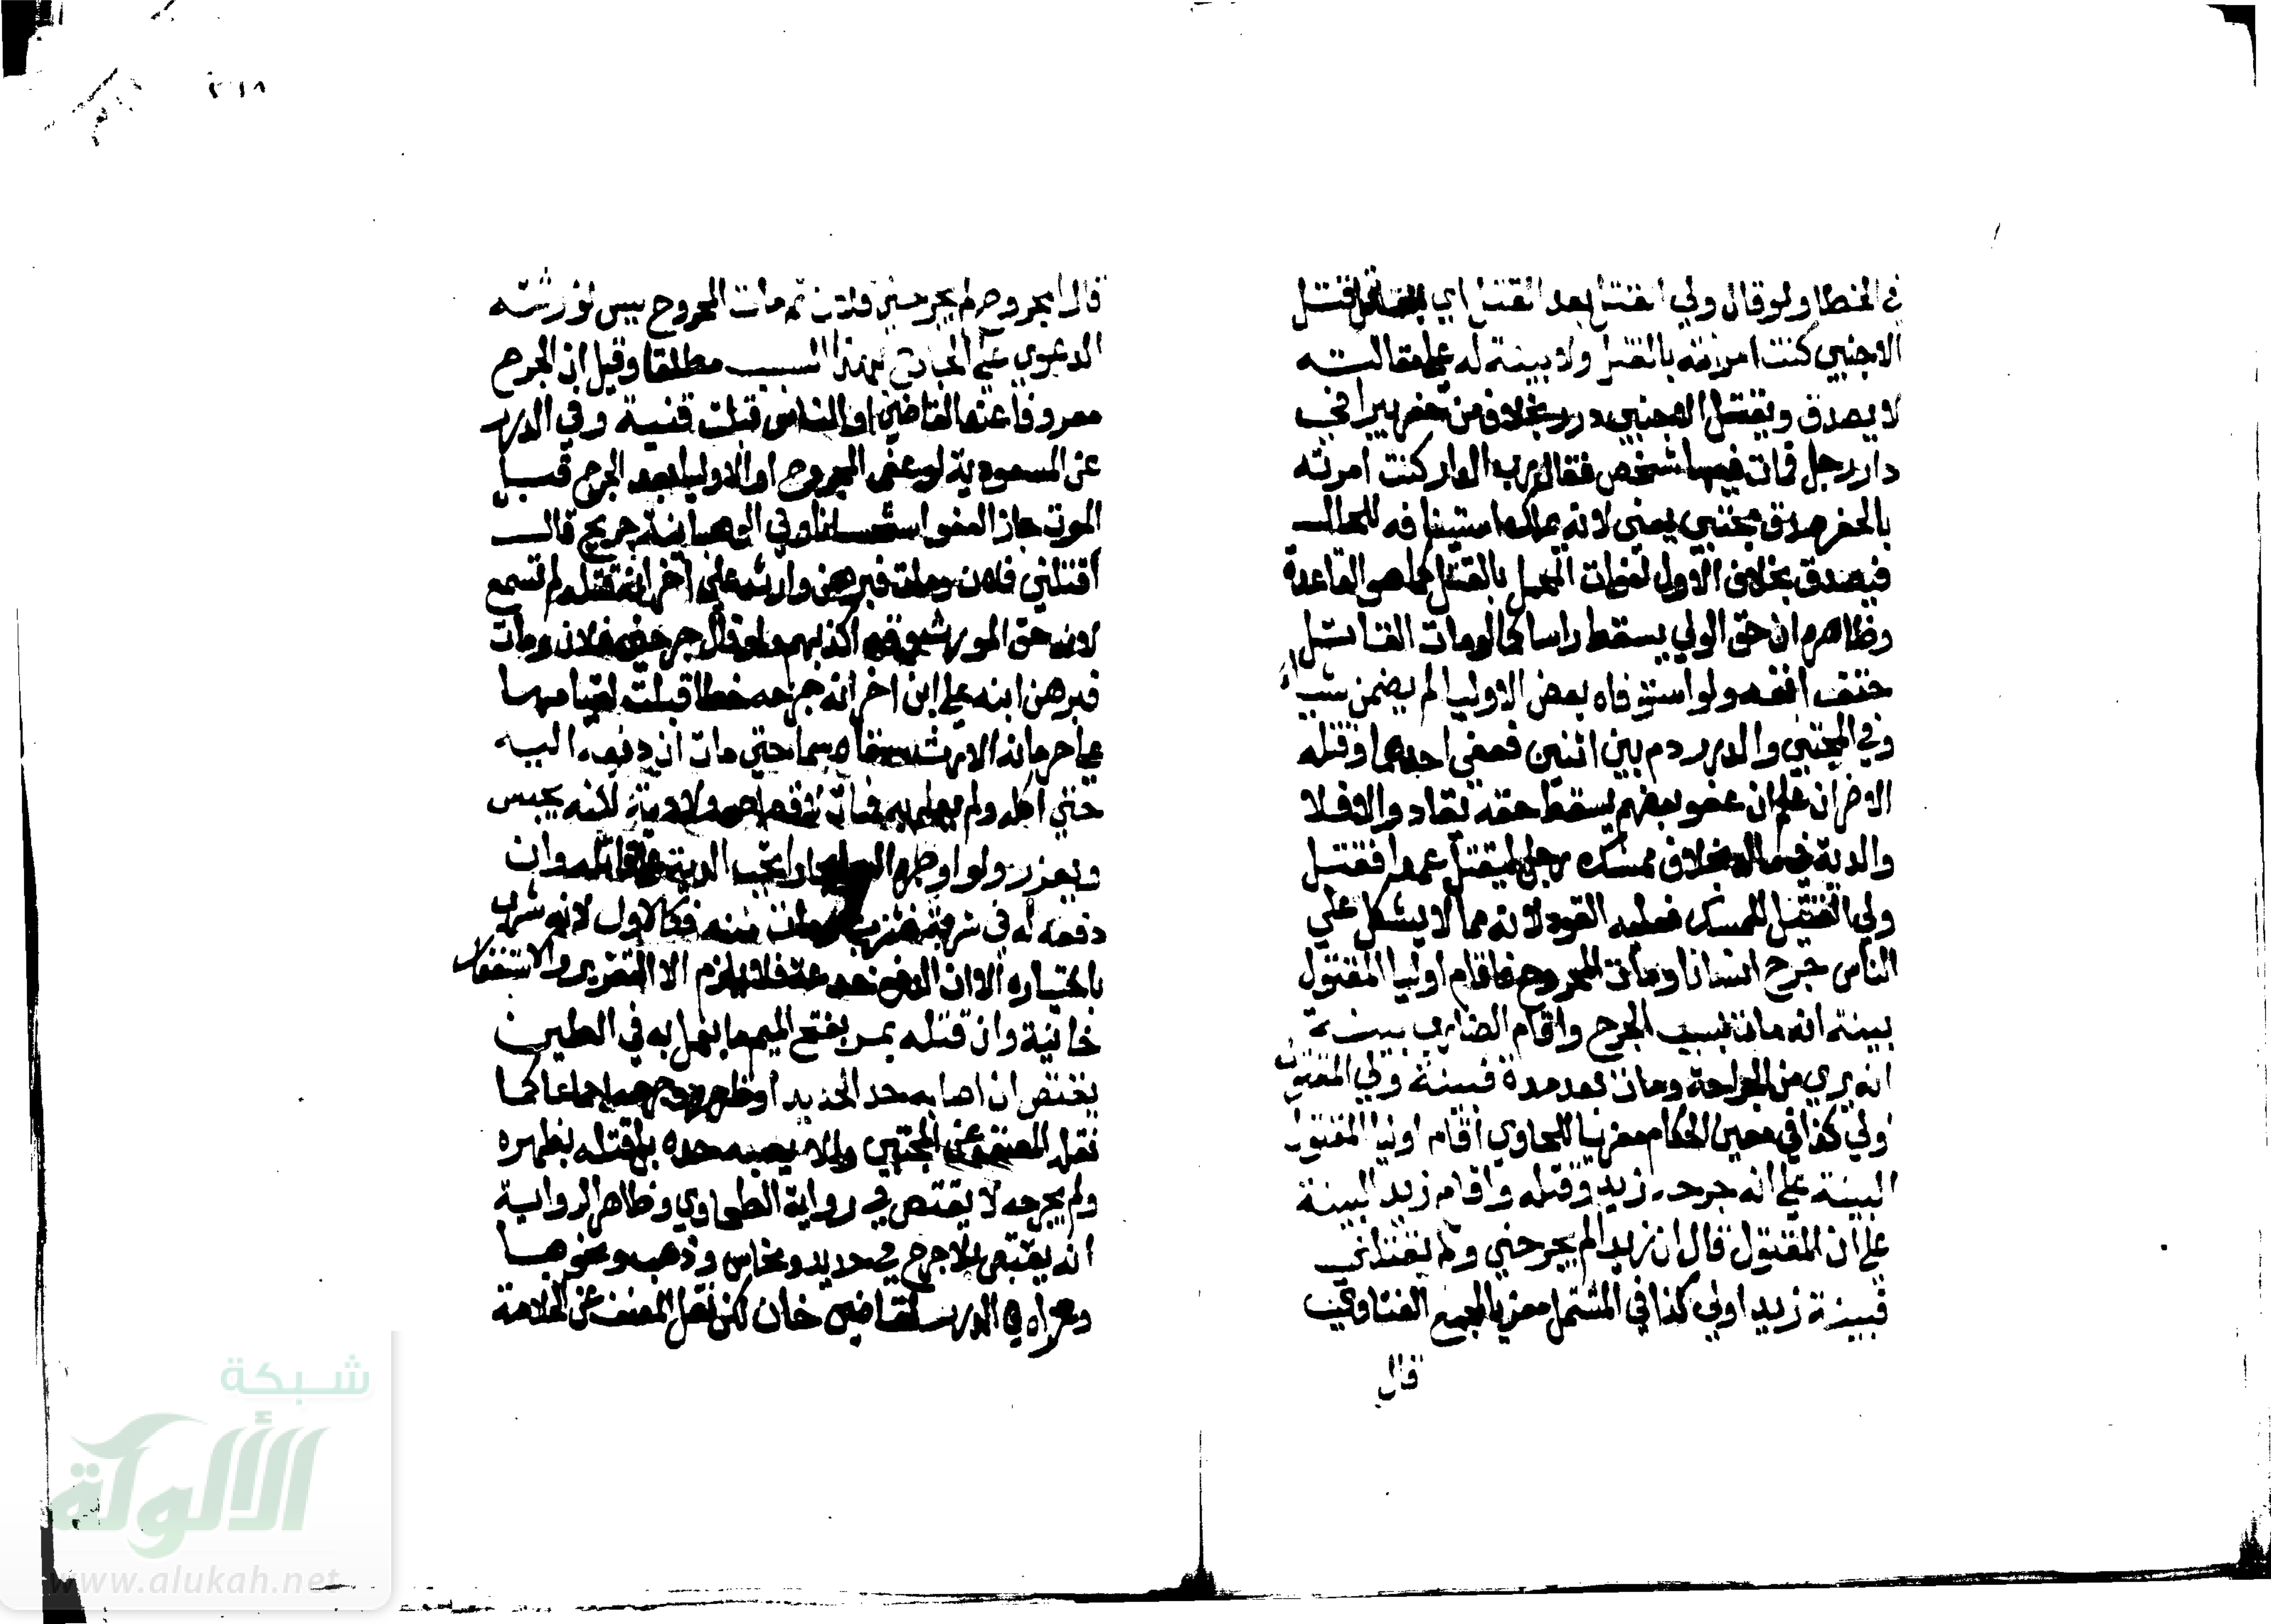 في الخطا ولو قال ولي القتيل بعد القتل اي بعد قتل
الاجنبي كنت امرته بالقتل ولا بينة له على مقالته
لا يصدق ويقتل الاجنبي درر بخلاف من حفر بيرا في
دار رجل فمات فيها شخص فقال رب الدار كنت امرته
بالحفر صدق مجتبى يعني لانه يملك استينافه للحال
فيصدق بخلاف الاول لفوات المحل بالقتل كما هو القاعدة
وظاهره ان حق الولي يسقط راسا كما لو مات القاتل
حتف انفه ولو استوفاه بعض الاوليا لم يضمن شيا
وفي المجتبى والدرر دم بين اثنين فعفى احدهما وقتله
الاخر ان علم ان عفو بعضهم يسقط حقه يقاد والا فلا
والدية في ماله بخلاف ممسك رجل ليقتل عمدا فقتل
ولي القتيل الممسك فعليه القود لانه مما لا يشكل على
الناس جرح انسانا ومات المجروح فاقام اوليا المقتول
بينة انه مات بسبب الجرح واقام الضارب بينة
انه بري من الجراحة ومات بعد مدة فبينة ولي المقتول
اولي كذا في معين الحكام معزيا للحاوي اقام اوليا المقتول
البينة على انه جرحه زيد وقتله واقام زيد البينة
على ان المقتول قال ان زيدا لم يجرحني ولم يقتلني
فبينة زيد اولي كذا في المشتمل معزيا لمجمع الفتاوي
قال
٣١٨
قال المجروح لم يجرحني فلان ثم مات المجروح ليس لورثته
الدعوي على الجارح بهذا السبب مطلقا وقيل ان الجرح
معروفا عند القاضي او الناس قبلت قنية وفي الدرر
عن المسعودية لو عفى المجروح او الاوليا بعد الجرح قبل
الموت جاز العفو استحسانا وفي الوهبانية جريح قال
قتلني فلان ومات فبرهن وارثه على اخر انه قتله لم تسمع
لانه حق المورث وقد اكذبهم ولو قال جرحني فلان ومات
فبرهن ابنه على ابن اخر انه جرحه خطا قبلت لقيامها
على حرمانه الارث سقاه سما حتى مات ان دفعه اليه
حتى اكله ولم يعلم به فمات لا قصاص ولا دية لكنه يحبس
ويعزر ولو اوجره السم ايجارا تجب الدية على عاقلته وان
دفعه له في شربة فشرب ومات منه فكالاول لانه شرب
باختياره الا ان الدفع خدعة فلا يلزم الا التعزير والاستغفار
خانية وان قتله بمر بفتح الميم ما يعمل به في الطين
يقتص ان اصابه حد الحديد او ظهره وجرحه اجماعا كما
نقله المصنف عن المجتبى والا يصبه حده بل قتله بظهره
ولم يجرحه لا يقتص في رواية الطحاوي وظاهر الرواية
انه يقتص بلا جرح في حديد ونحاس وذهب ونحوها
وعزاه في الدرر لقاضي خان لكن نقل المصنف عن الخلاصة
شبكة
الألوكة
www.alukah.net